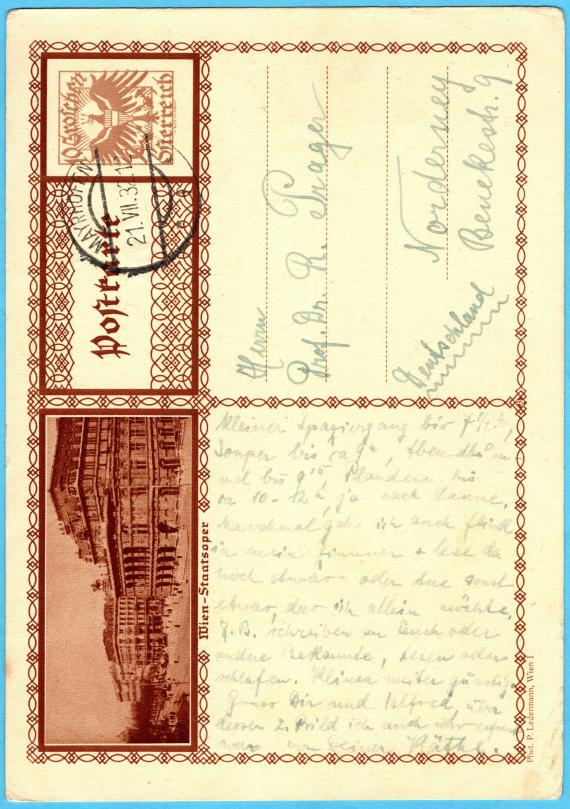 10 Groschen
Österreich
MAYRHOFEN
21.VII.32.12
Postkarte
Herrn
Prof. Dr. R. Prager
Norderney
Benekestr. 9
Deutschland
Wien-Staatsoper
kleiner Spaziergang bis 7 1/2 h,
Souper bis ca 9h,
bis 9 15, Plaudern bis
ca 10-12 h, je nach Laune.
Manchmal gehe ich auch
in mein Zimmer + lese da
noch etwas oder tue sonst
etwas, das ich allein möchte,
z.B. schreiben an Euch oder
andere Bekannte, lesen oder
schlafen. Klima weiter günstig.
Gruss Dir und Alfred, über
dessen 2. Bild ich auch sehr erfreut
war von Deiner Käthe.
Phot. P. Ledermann, Wien I